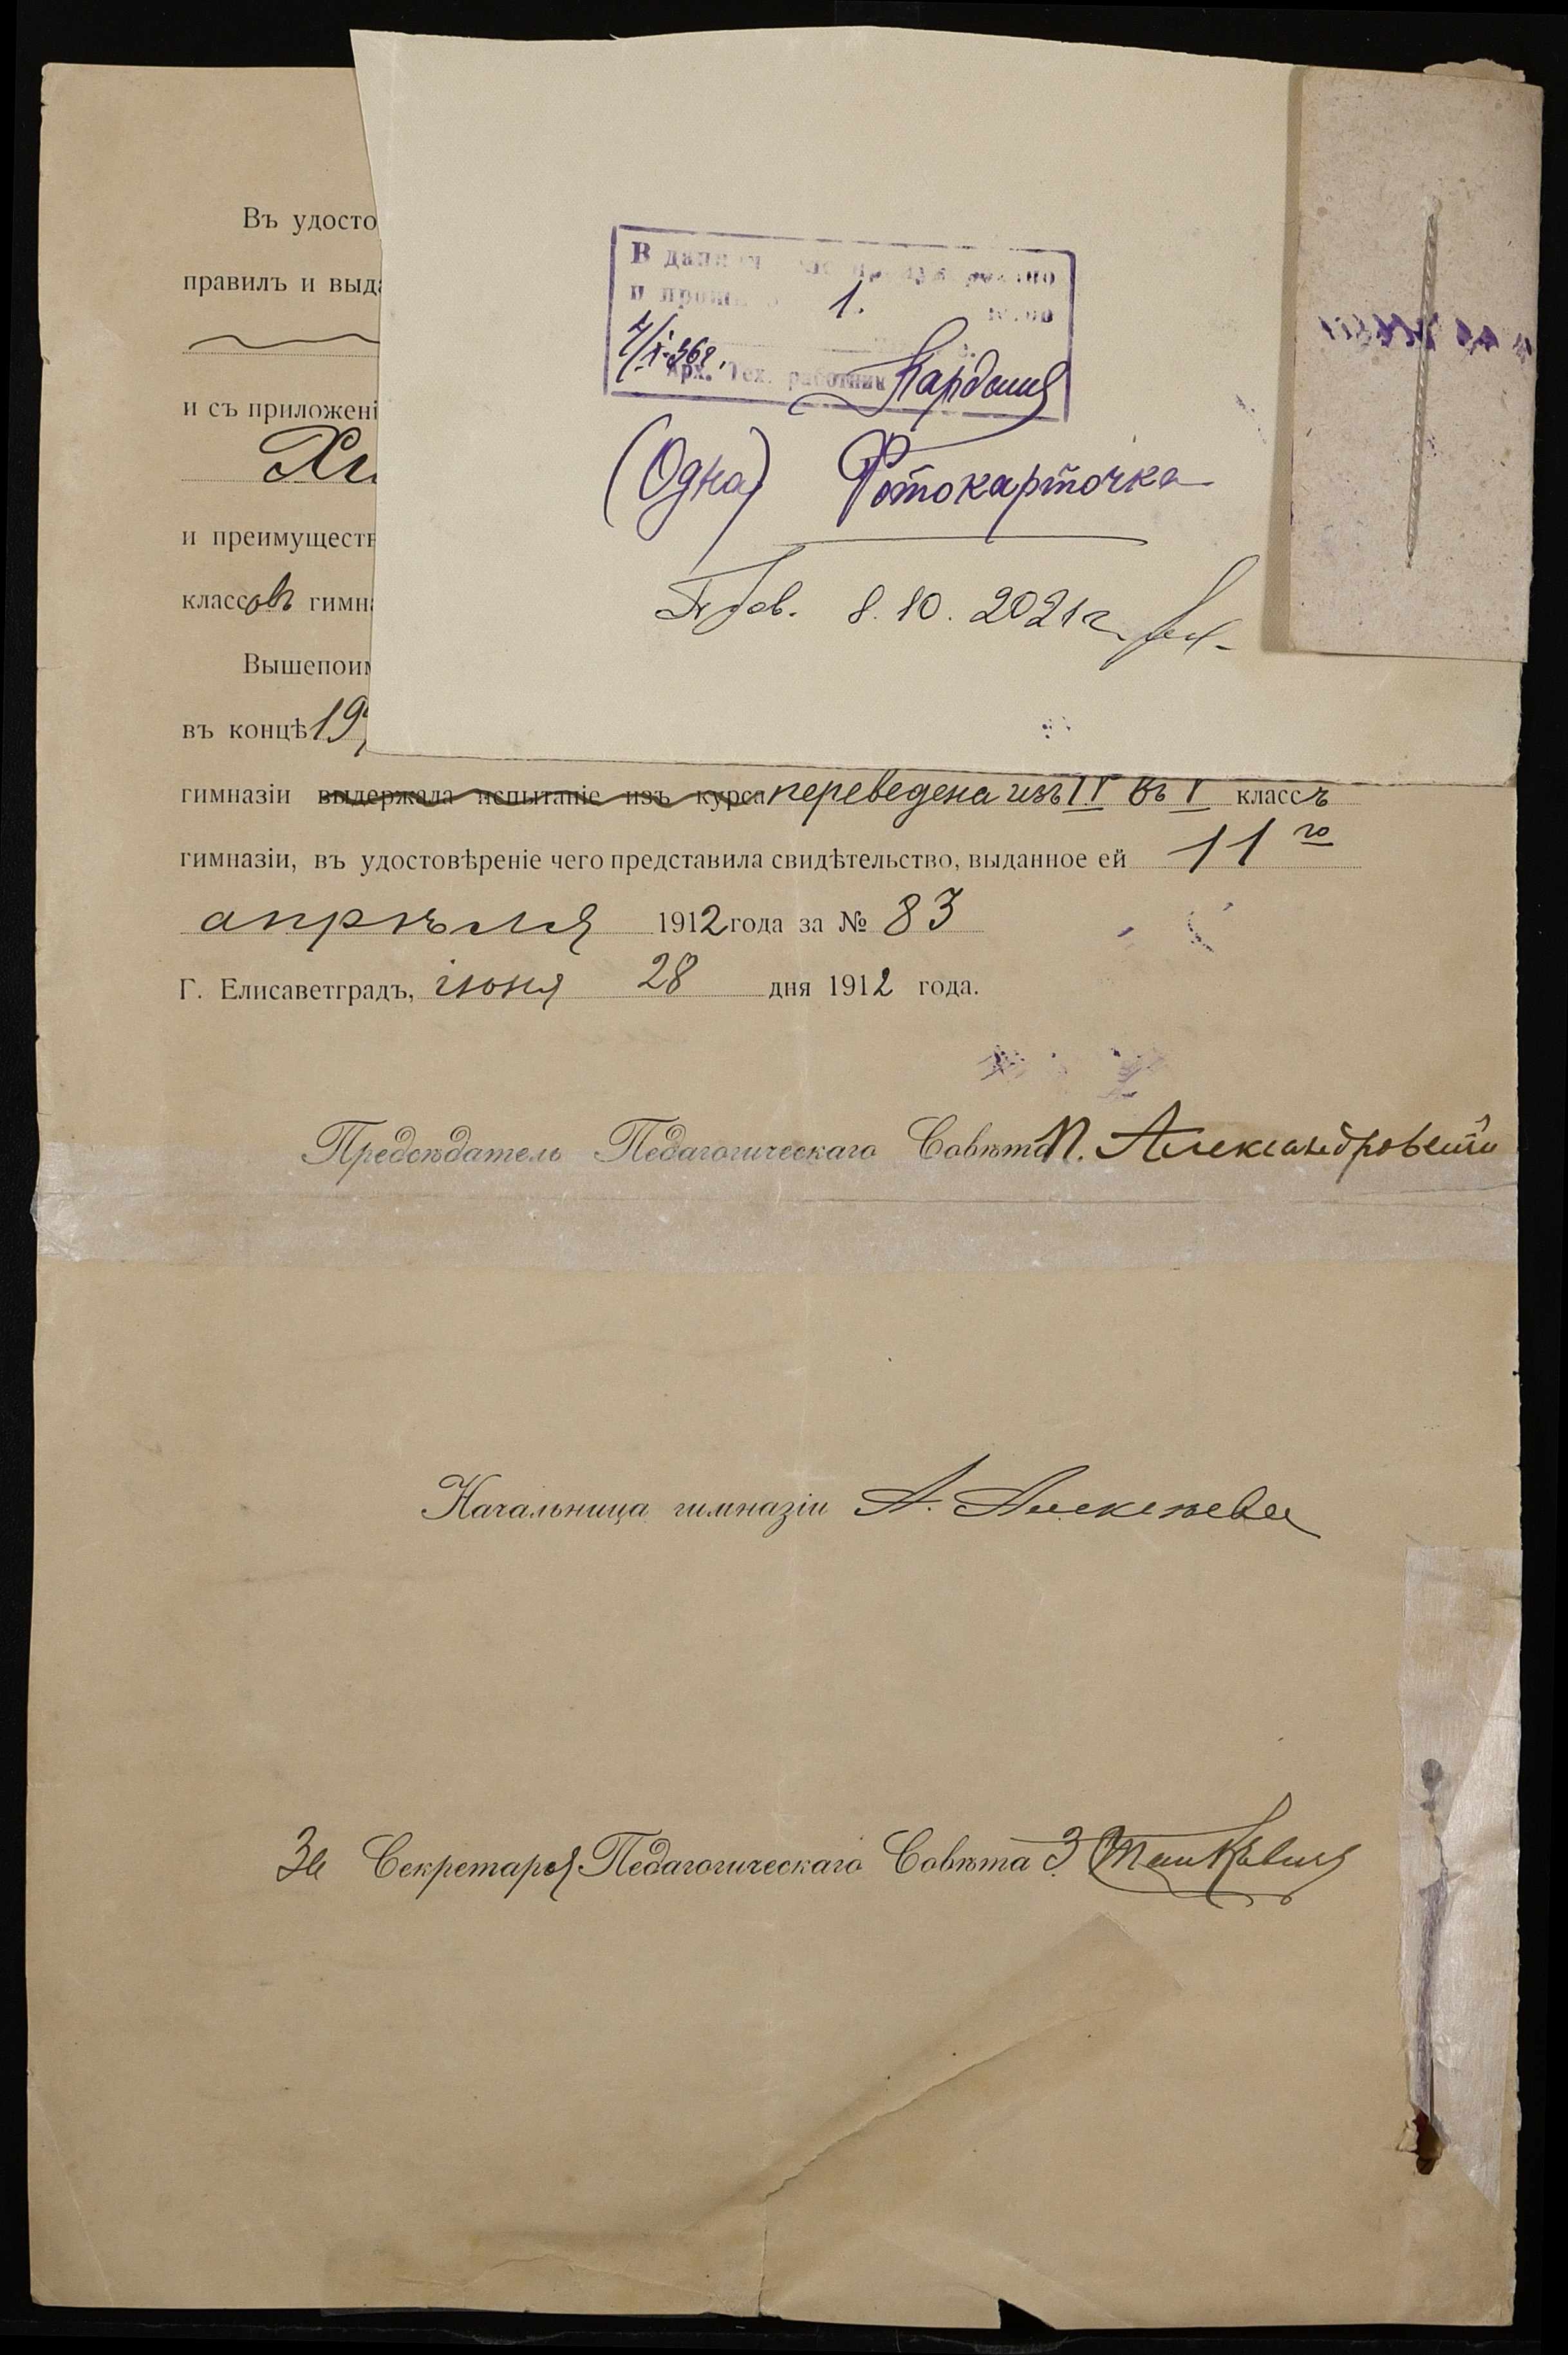 Въ удосто
правилъ и выда
и съ приложені
Хи
и преимуществ
классовъ гимна
Вышепоим
въ концѣ 19
В
и 1.
Арх. Тех. работник
(Одна) Фотокарточка
8.10.2021г.
гимназіи выдержала испытаніе изъ курса переведена изъ IV въ V классъ
гимназіи, въ удостовѣреніе чего представила свидѣтельство, выданное ей 11го
апрѣля 1912 года за № 83
Г. Елисаветградъ, іюня 28 дня 1912 года.
Предсѣдатель Педагогическаго Совѣта П. Александровскій
Начальница гимназіи А. Алексѣева
За Секретаря Педагогическаго Совѣта З.